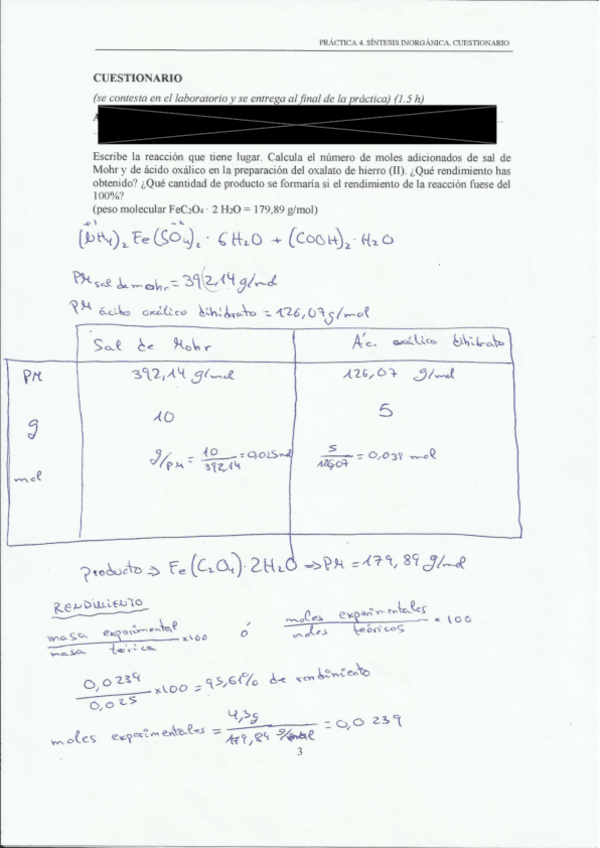 PRÁCTICA 4. SÍNTESIS INORGÁNICA. CUESTIONARIO
CUESTIONARIO
(se contesta en el laboratorio y se entrega al final de la práctica) (1.5 h)
Escribe la reacción que tiene lugar. Calcula el número de moles adicionados de sal de
Mohr y de ácido oxálico en la preparación del oxalato de hierro (II). ¿Qué rendimiento has
obtenido? ¿Qué cantidad de producto se formaría si el rendimiento de la reacción fuese del
100%?
(peso molecular FeC₂O₄ · 2 H₂O = 179,89 g/mol)
+1 -2
(NH₄)₂ Fe(SO₄)₂ · 6 H₂O + (COOH)₂ · H₂O
PM sal de mohr = 392,14 g/mol
PM ácido oxálico dihidrato = 126,07 g/mol
Sal de Mohr Ác. oxálico dihidrato
PM 392,14 g/mol 126,07 g/mol
g 10 5
mol g/PM = 10/392,14 = 0,025 mol 5/126,07 = 0,039 mol
producto ⇒ Fe(C₂O₄) · 2H₂O ⇒ PM = 179,89 g/mol
RENDIMIENTO
masa experimental/masa teórica × 100 ó moles experimentales/moles teóricos × 100
0,0239/0,025 × 100 = 95,61% de rendimiento
moles experimentales = 4,3g/179,89 g/mol = 0,0239
3